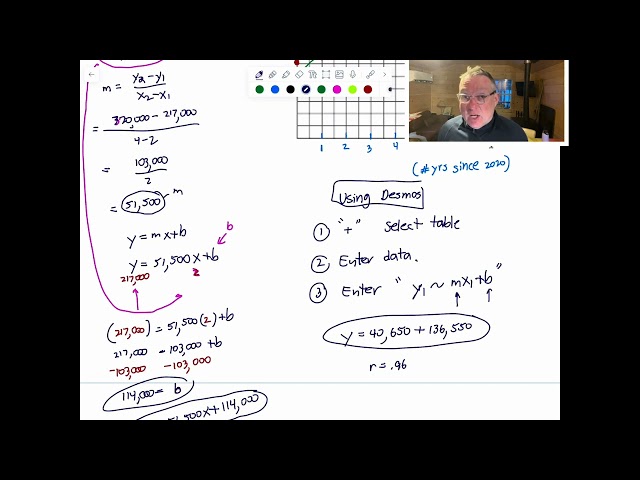 m = y₂-y₁ / x₂-x₁
= 320,000 - 217,000 / 4-2
= 103,000 / 2
= 51,500 m
y = mx+b
b
y = 51,500x+b
217,000 2
(217,000) = 51,500(2)+b
217,000 = 103,000 +b
-103,000 -103,000
114,000 = b
x+114,000
1 2 3 4
(#yrs since 2020)
Using Desmos
1 "+" select table
2 Enter data.
3 Enter "y₁ ~ mx₁+b"
y = 40,650 + 136,550
r = .96